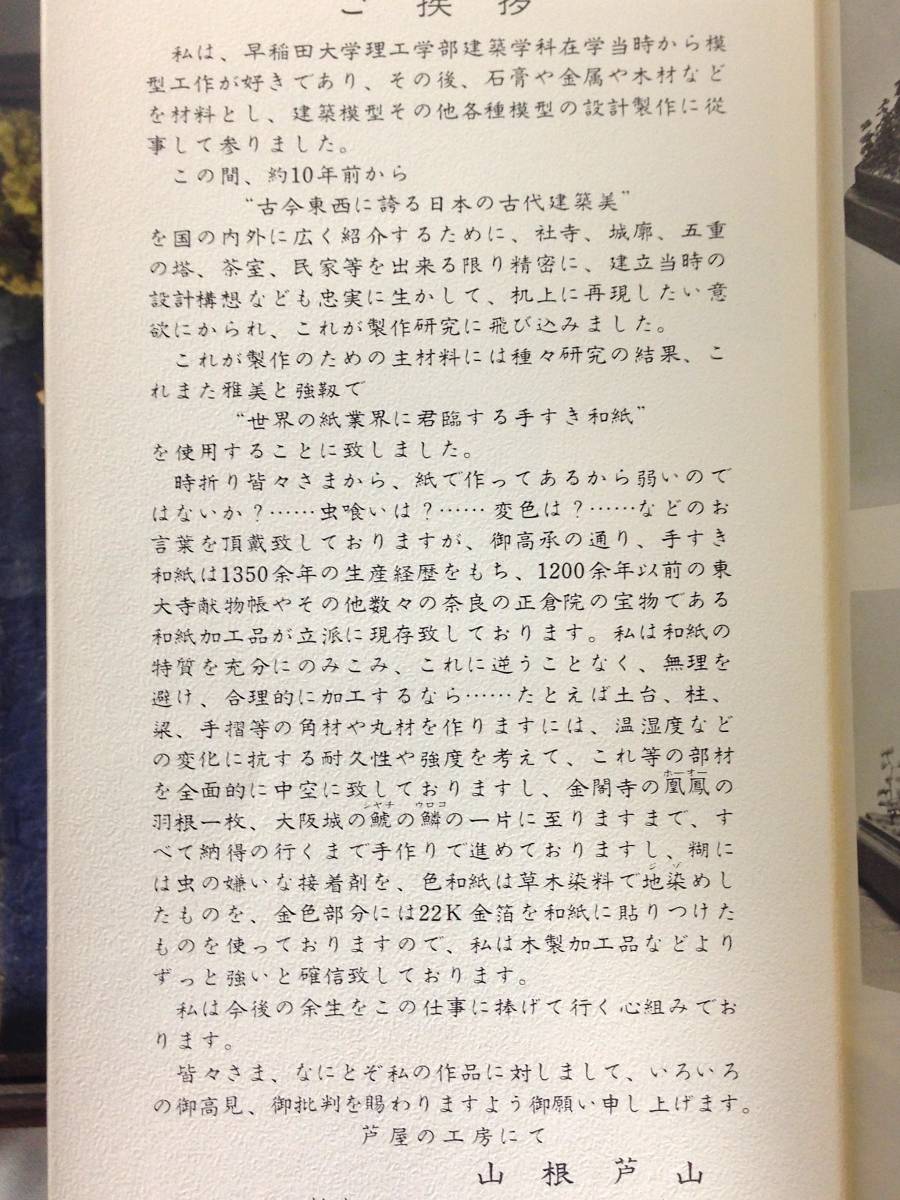 ご挨拶
私は、早稲田大学理工学部建築学科在学当時から模
型工作が好きであり、その後、石膏や金属や木材など
を材料とし、建築模型その他各種模型の設計製作に従
事して参りました。
この間、約10年前から
“古今東西に誇る日本の古代建築美”
を国の内外に広く紹介するために、社寺、城廓、五重
の塔、茶室、民家等を出来る限り精密に、建立当時の
設計構想なども忠実に生かして、机上に再現したい意
欲にかられ、これが製作研究に飛び込みました。
これが製作のための主材料には種々研究の結果、こ
れまた雅美と強靱で
“世界の紙業界に君臨する手すき和紙”
を使用することに致しました。
時折り皆々さまから、紙で作ってあるから弱いので
はないか?……虫喰いは?……変色は?……などのお
言葉を頂戴致しておりますが、御高承の通り、手すき
和紙は1350余年の生産経歴をもち、1200余年以前の東
大寺献物帳やその他数々の奈良の正倉院の宝物である
和紙加工品が立派に現存致しております。私は和紙の
特質を充分にのみこみ、これに逆うことなく、無理を
避け、合理的に加工するなら……たとえば土台、柱、
梁、手摺等の角材や丸材を作りますには、温湿度など
の変化に抗する耐久性や強度を考えて、これ等の部材
を全面的に中空に致しておりますし、金閣寺の凰鳳の
ホーオー
羽根一枚、大阪城の鯱の鱗の一片に至りますまで、す
シヤチ ウロコ
べて納得の行くまで手作りで進めておりますし、糊に
は虫の嫌いな接着剤を、色和紙は草木染料で地染めし
ジゾ
たものを、金色部分には22K金箔を和紙に貼りつけた
ものを使っておりますので、私は木製加工品などより
ずっと強いと確信致しております。
私は今後の余生をこの仕事に捧げて行く心組みでお
ります。
皆々さま、なにとぞ私の作品に対しまして、いろいろ
の御高見、御批判を賜わりますよう御願い申し上げます。
芦屋の工房にて
山根芦山